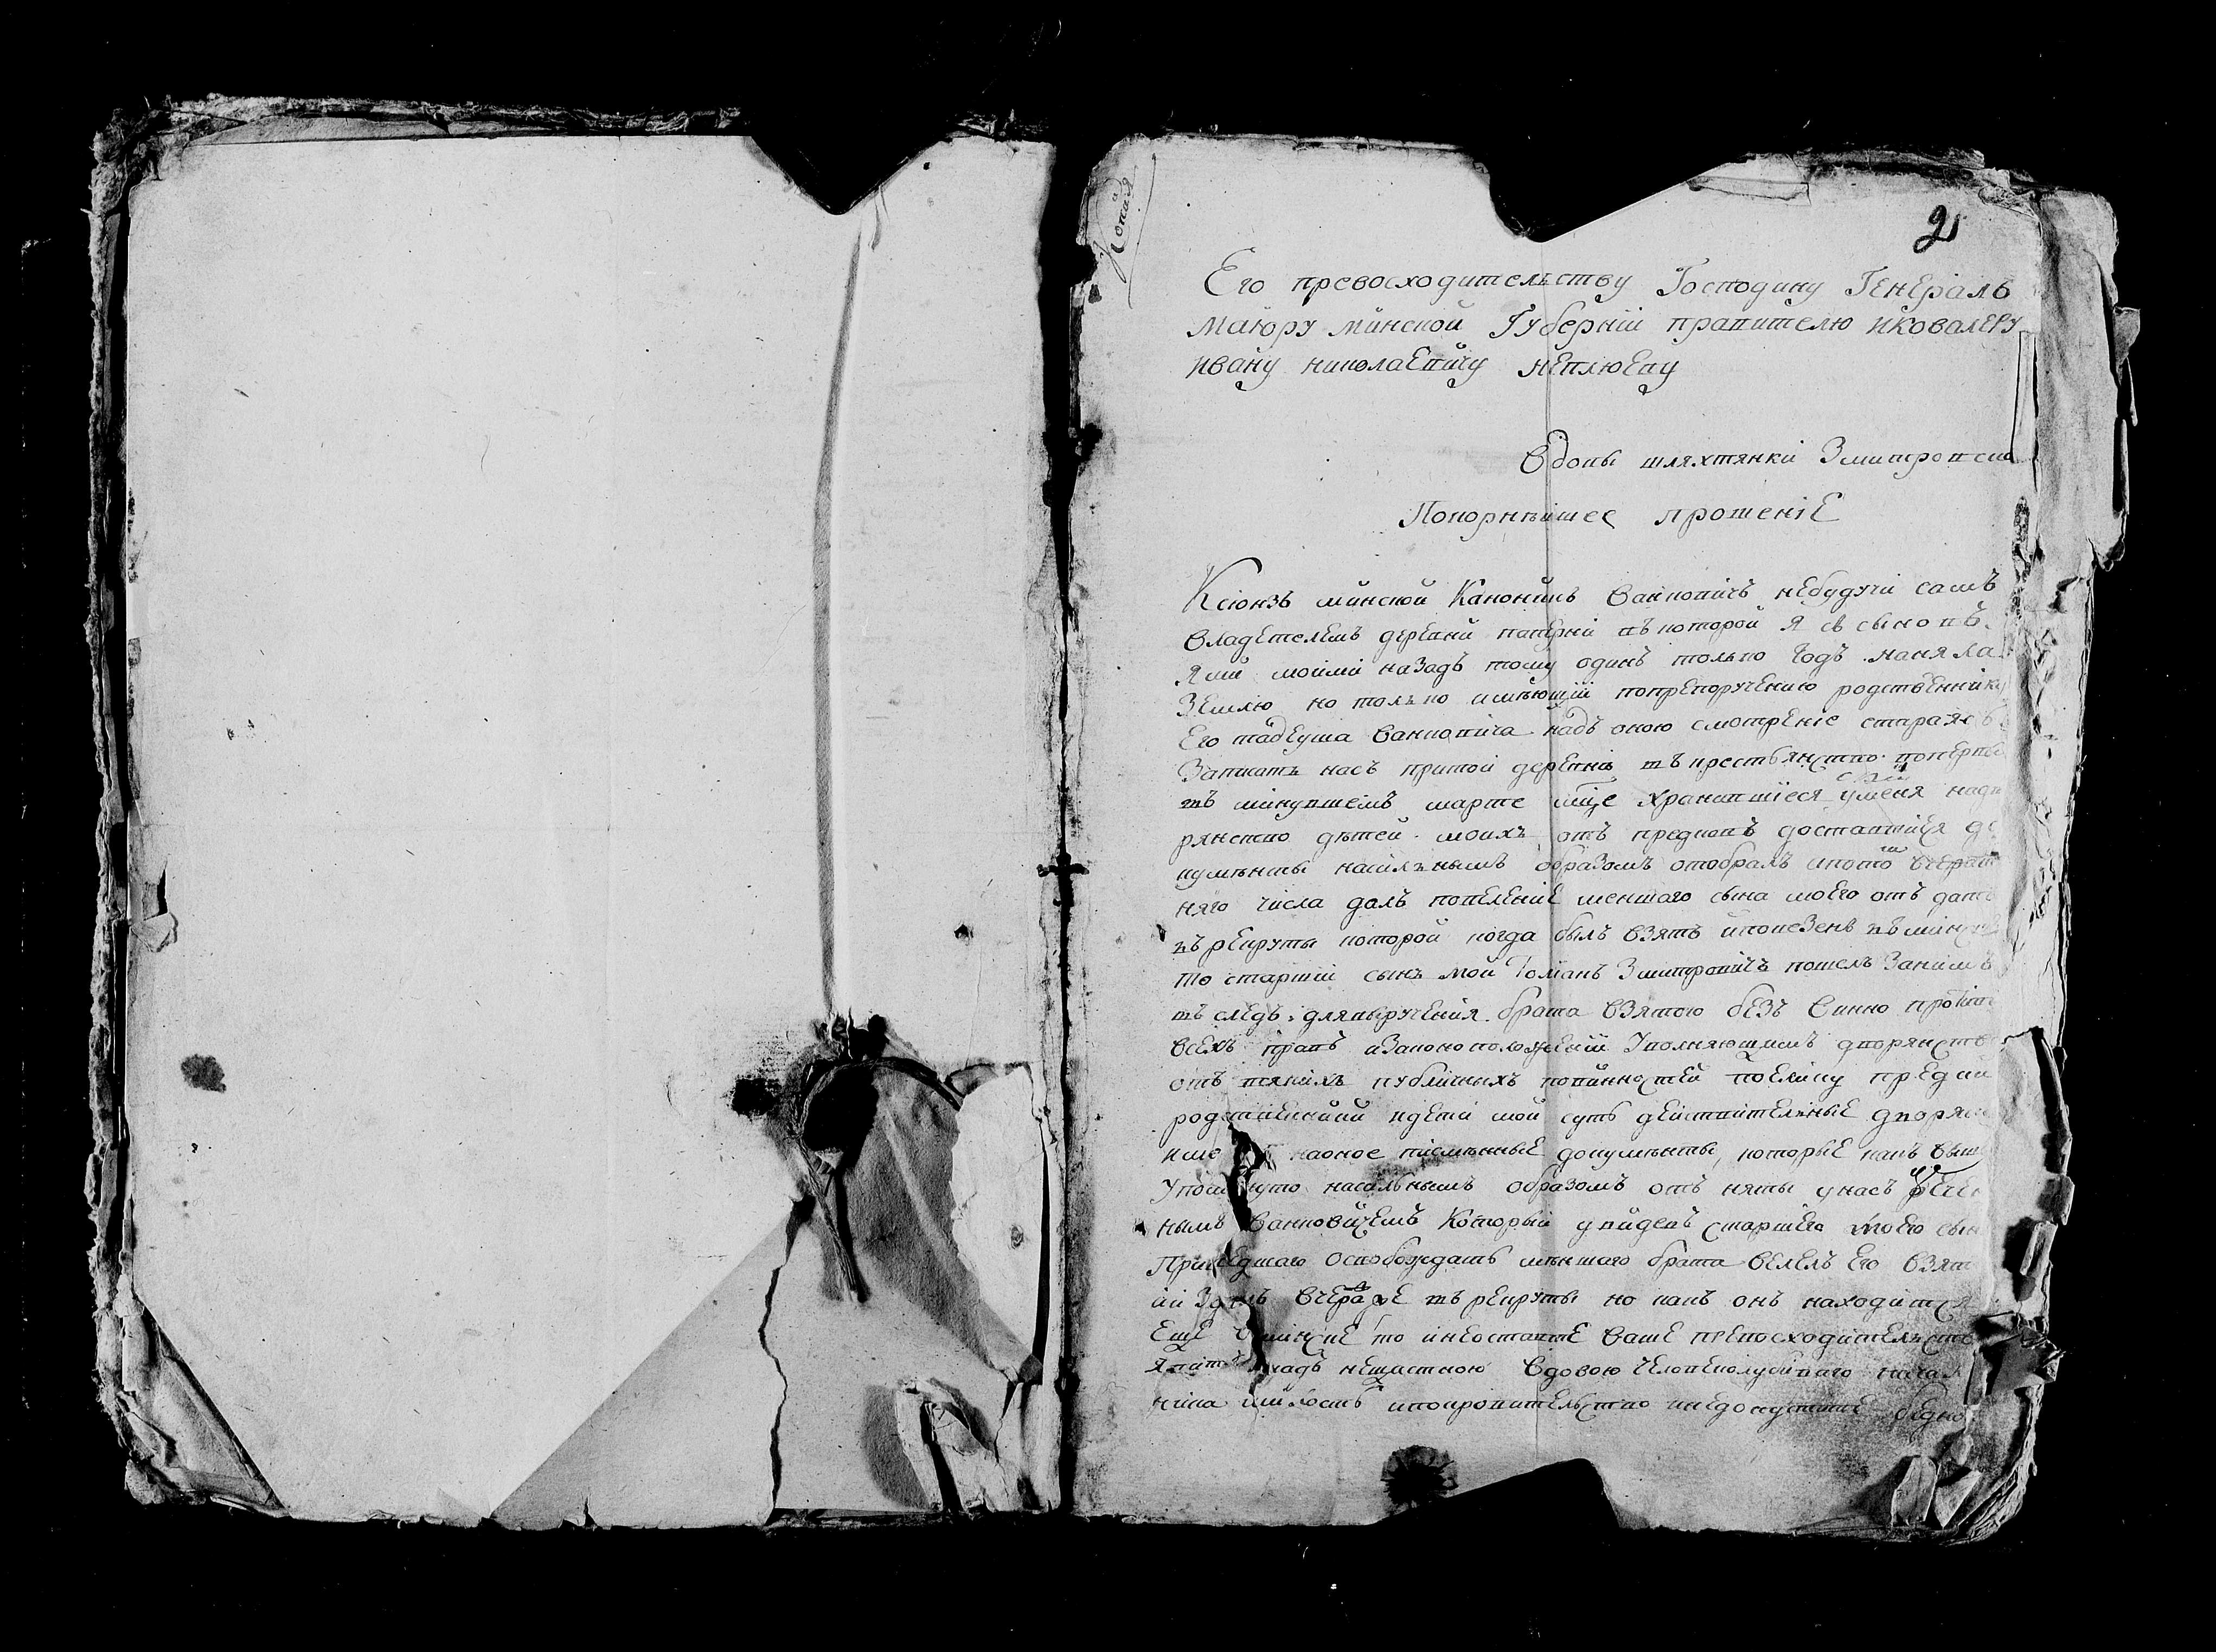 Копия
2
Его превосходителству Господину Генералъ
Маіору минской Губерніи правителю и ковалеру
Ивану николаевичу неплюеву
Вдовы шляхтянки Змитрович
Покорнейшее прошеніе
Ксіонзъ минской Каноникъ Ваньковичъ небудучи самъ
владетелемъ деревни паперни въ которой я съ сыновь
ями моими назадъ тому одинъ только годъ наняла
Землю но только имеющій попрепоручению родственника
Его тадеуша Ваньковича надъ оною смотреніе стараясь
Записать насъ притой деревне въ крестьянство
въ минувшемъ марте м҃це хранившіеся уменя надво
рянство детей моихъ отъ предковъ доставшіися до
кументы насильнымъ образомъ отобралъ ипото вчераш
няго числа далъ повеление меншаго сына моего отъ дать
въ рекруты которой когда былъ взятъ иповезенъ въ минск
то старшій сынъ мой Романъ Змитровичъ пошелъ Занимъ
въ следъ для выручения брата взятою безъ винно проти
всехъ правъ изаконоположений Уполняющимъ дворянство
отъ всякихъ публичныхъ повинностей поелику предки
родственники идети мои суть действительные дворяне
наоное писменные документы, которые какъ выш
насильнымъ образомъ отъ няты унасъ
нымъ Ваньковичемъ который увидевъ старшего моего сын
Пришедшаго освобождать меншого брата велелъ Его взят
вчера же въ рекруты но какъ онъ находится
Еще то инеоставте ваше превосходительство
надъ нещастною вдовою человеколюбиваго
милость ипокровительство инедопустите бедно